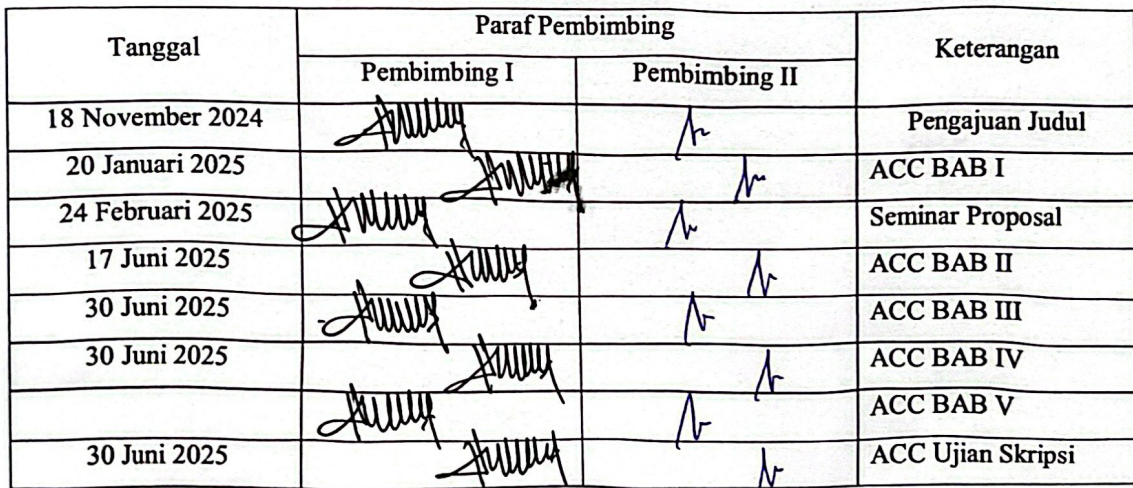 Tanggal
Paraf Pembimbing
Keterangan
Pembimbing I
Pembimbing II
18 November 2024
Pengajuan Judul
20 Januari 2025
ACC BAB I
24 Februari 2025
Seminar Proposal
17 Juni 2025
ACC BAB II
30 Juni 2025
ACC BAB III
30 Juni 2025
ACC BAB IV
ACC BAB V
30 Juni 2025
ACC Ujian Skripsi